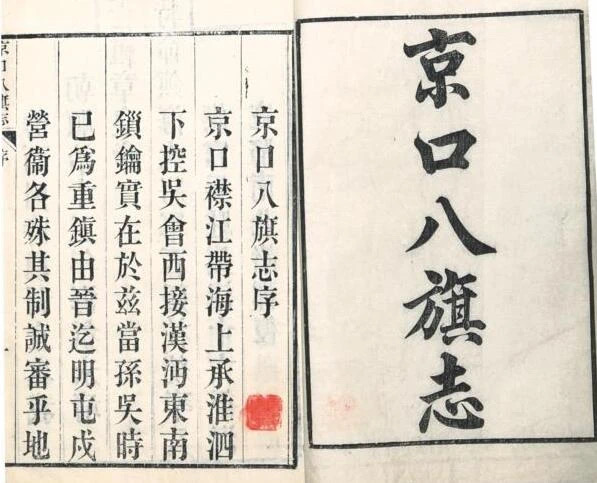 京口八旗志
京口八旗志序
京口襟江帶海上承淮泗
下控吳會西接漢沔東南
鎖鑰實在於兹當孫吳時
已爲重鎭由晉迄明屯戍
營衞各殊其制誠審乎地
京口八旗志 序 一